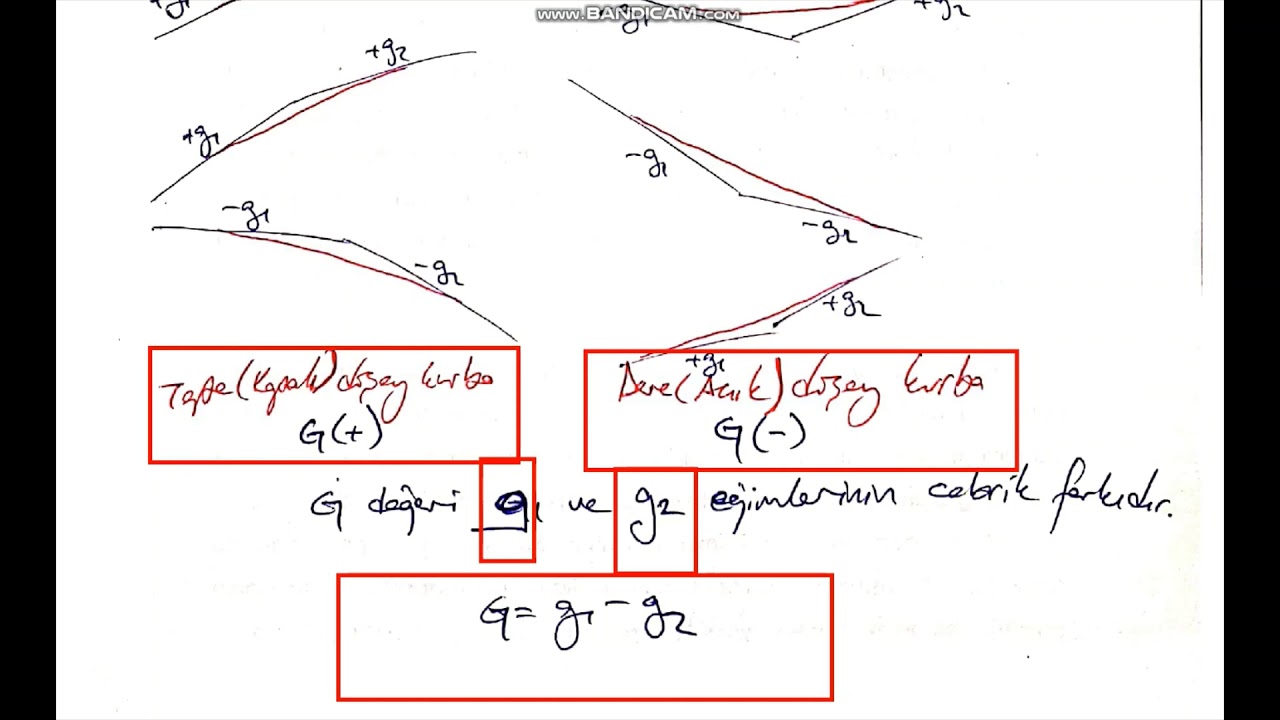 www.BANDICAM.com
+g1
g1
+g2
+g2
+g1
-g1
-g2
-g1
-g2
+g2
+g1
Tepe (Kapalı) düşey kurba
G(+)
Dere (Açık) düşey kurba
G(-)
G değeri g1 ve g2 eğimlerinin cebrik farkıdır.
G = g1 - g2